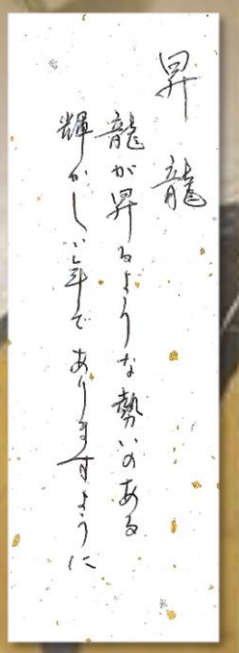 昇龍
龍が昇るような勢いのある
輝かしい年でありますように